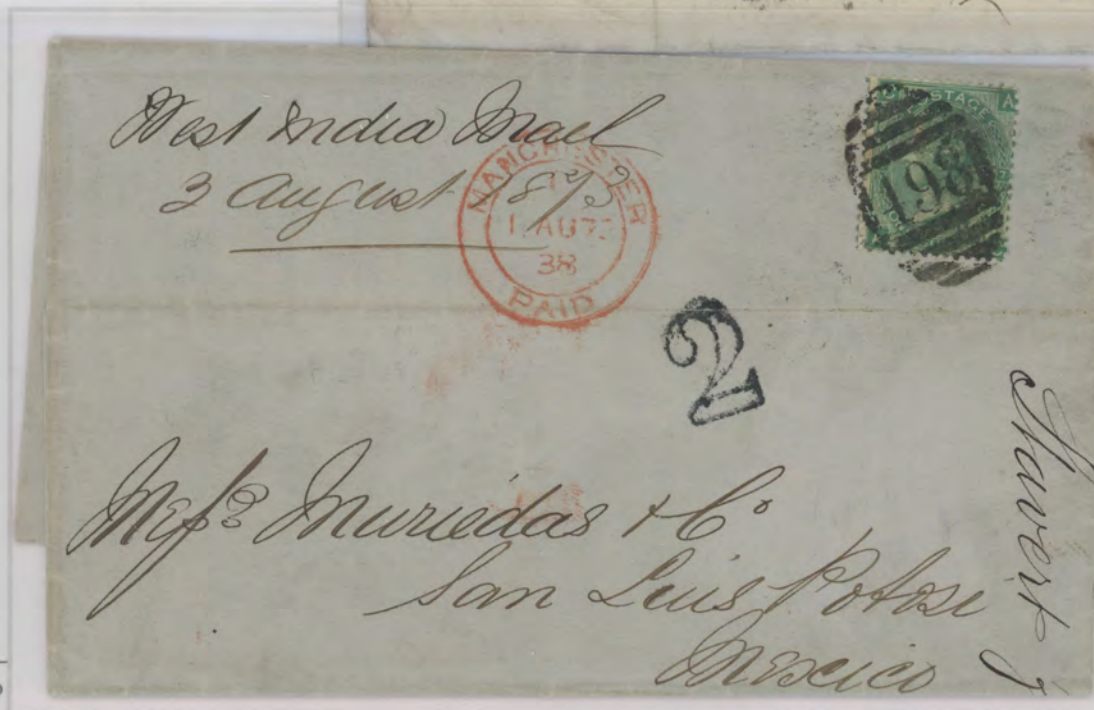 West India Mail
3 August 1873
MANCHESTER
1 AU 73
38
PAID
POSTAGE
A
498
2
Mess Muriedas & Co
San Luis Potosi
Mexico